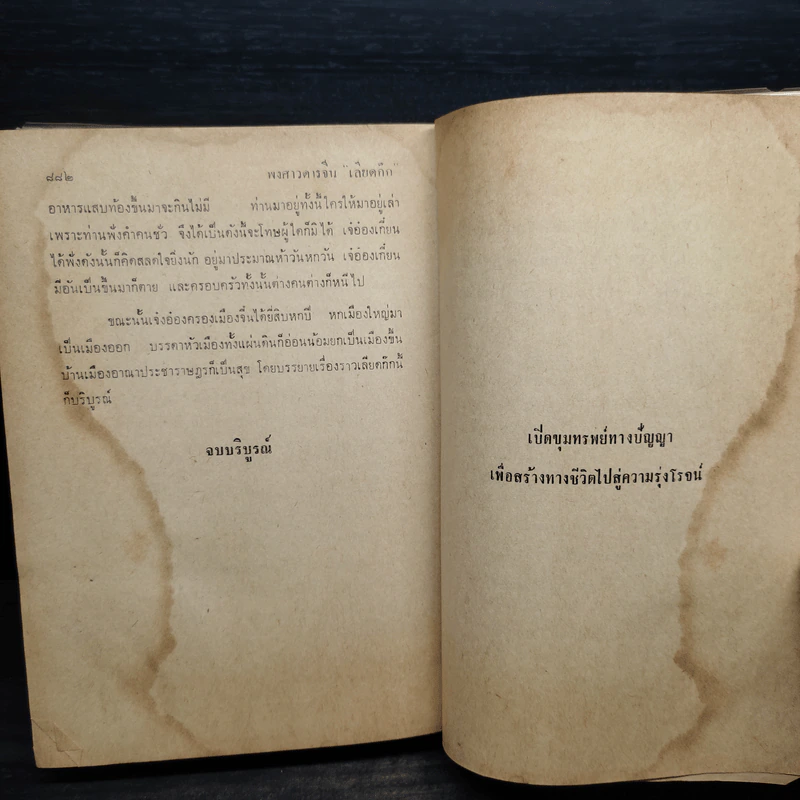 ๘๘๒ พงศาวดารจีน "เลียดก๊ก"
อาหารแสบท้องขึ้นมาจะกินไม่มี ท่านมาอยู่ทั้งนี้ใครให้มาอยู่เล่า
เพราะท่านฟังคำคนชั่ว จึงได้เป็นดังนี้จะโทษผู้ใดก็มิได้ เจ๋อ๋องเกี๋ยน
ได้ฟังดังนั้นก็คิดสลดใจยิ่งนัก อยู่มาประมาณห้าวันหกวัน เจ๋อ๋องเกี๋ยน
มีอันเป็นขึ้นมาก็ตาย และครอบครัวทั้งนั้นต่างคนต่างก็หนีไป
ขณะนั้นเจ๋งอ๋องครองเมืองจิ๋นได้ยี่สิบหกปี หกเมืองใหญ่มา
เป็นเมืองออก บรรดาหัวเมืองทั้งแผ่นดินก็อ่อนน้อมยกเป็นเมืองขึ้น
บ้านเมืองอาณาประชาราษฎรก็เป็นสุข โดยบรรยายเรื่องราวเลียดก๊กนี้
ก็บริบูรณ์
จบบริบูรณ์
เปิดขุมทรัพย์ทางปัญญา
เพื่อสร้างทางชีวิตไปสู่ความรุ่งโรจน์